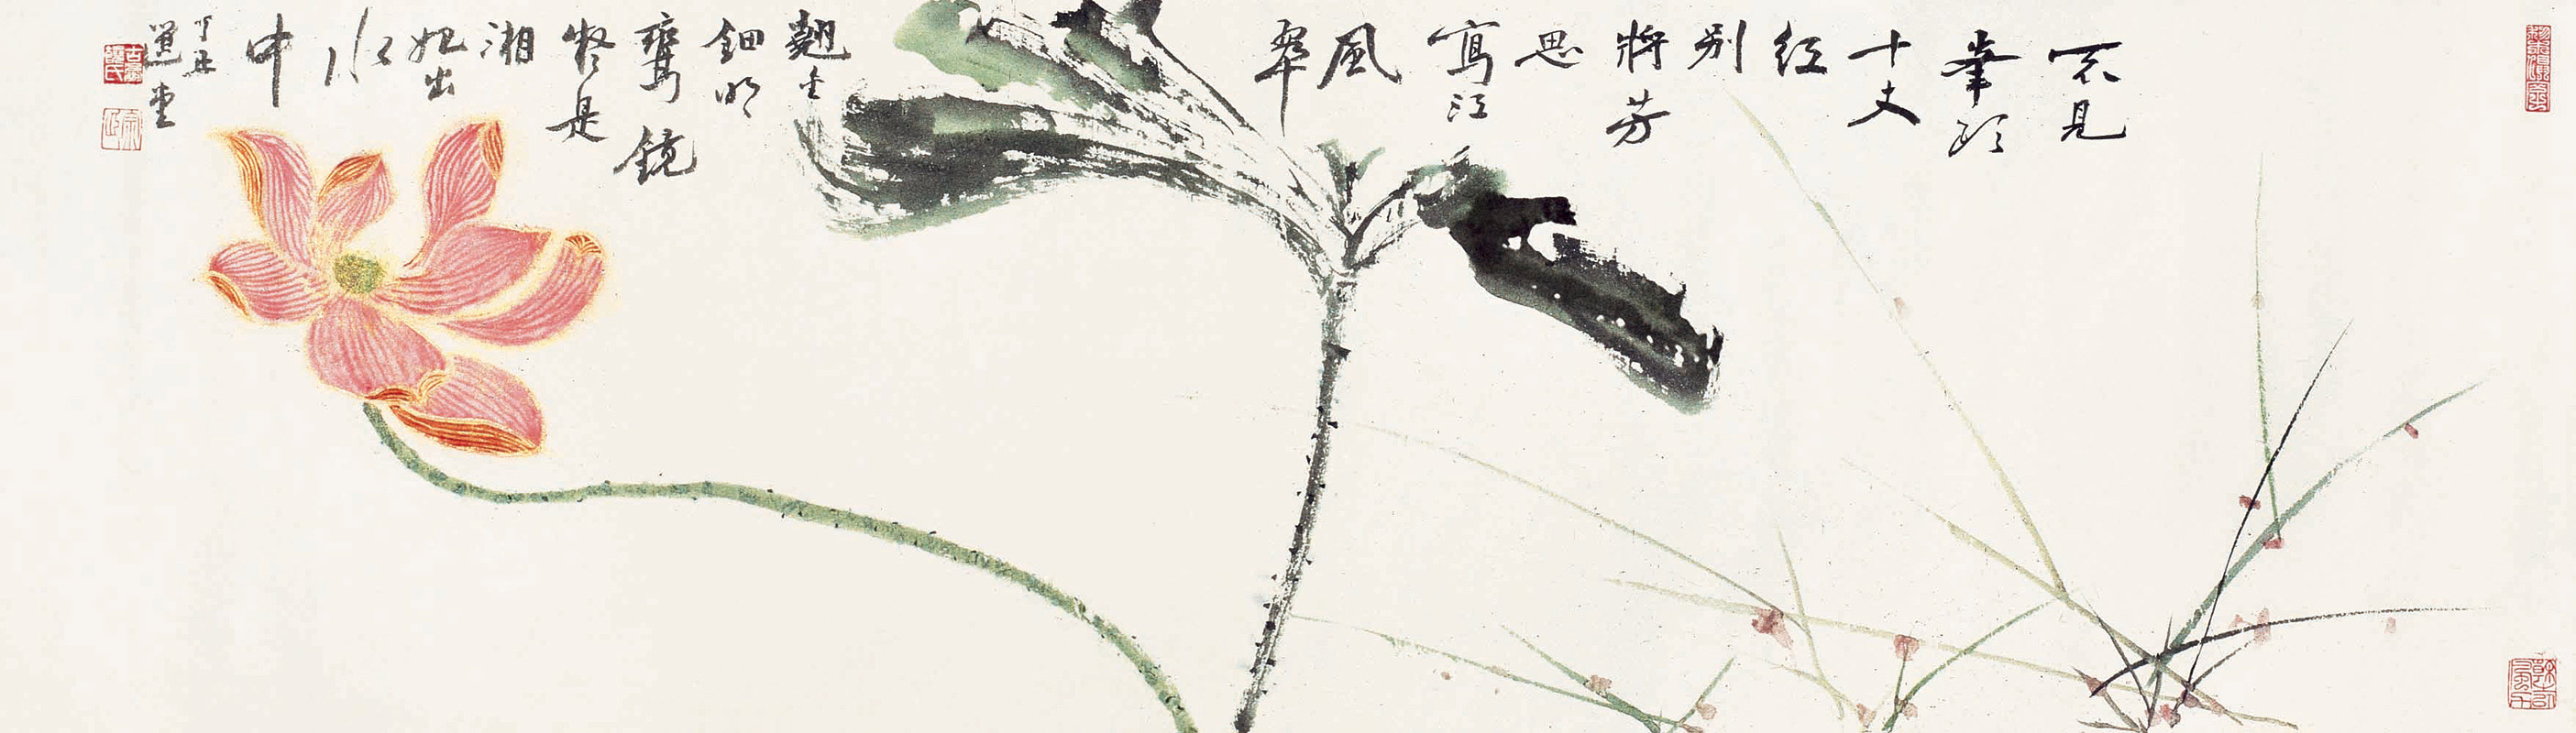 不見
峯頭
十丈
紅
别
將芳
思
寫江
風
翠
翹金
鈿明
鸞鏡
疑是
湘
妃出
水
中
丁丑
選堂
古瀛
饒氏